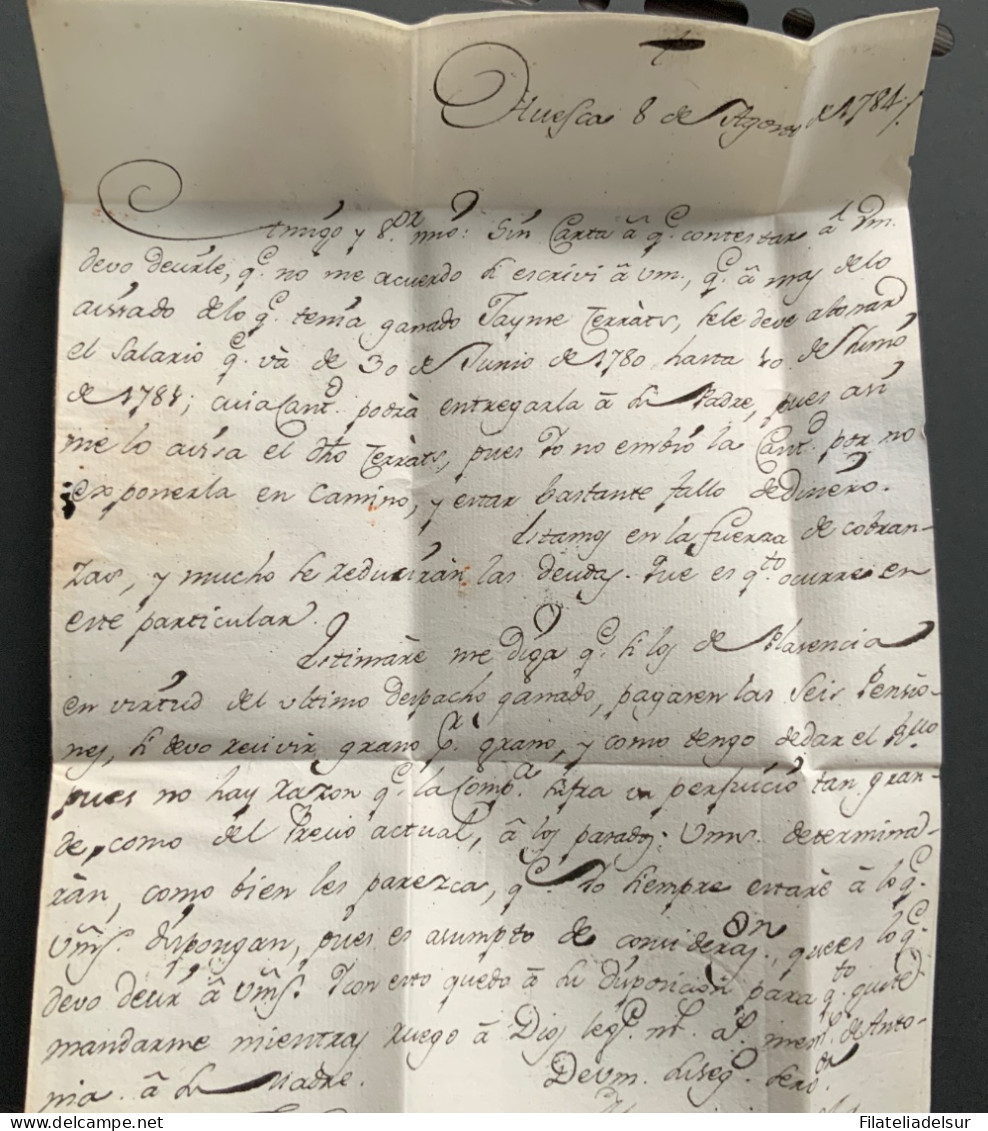 Huesca 8 de Agosto de 1784
Amigo y S.or mio: Sin Carta â q.e contestar â Vm.
devo decirle, q.e no me acuerdo si escrivi â vm., q.e â mas delo
avisado delo q.e tenia ganado Jayme Terràts, sele deve abonar
el Salario q.e và de 30 de Junio de 1780 hasta 10 de
de 1781; cuia Cant.d podrà entregarla â su Padre, pues asi
me lo avisa el dho Terràts, pues Yo no embio la Cant.d por no
exponerla en Camino, y estar bastante falto de Dinero.
Estamos en la fuerza de cobran-
zas, y mucho se reduciràn las deudas. Que es q.to ocurre en
este particular.
Estimarè me diga q.e si los de Plasencia
en virtud del ultimo despacho ganado, pagasen las Seis Pensio-
nes, si devo recivir grano p.r grano, y como tengo de dar el
pues no hay razon q.e la Comp.a sufra un perjuicio tan gran-
de, como del Precio actual, â los pasados: Vms. determina-
ràn, como bien les parezca, q.e Yo siempre estarè â lo q.e
Vms. dispongan, pues es asumpto de consideraz.on, que es lo q.e
devo decir â Vms. Y con esto quedo â su disposicion para q.to guste
mandarme mientras ruego â Dios le g.e m.s a.s mem.s de Anto-
nia â su Madre. De vm. su seg.o serv.or
Filateliadelsur